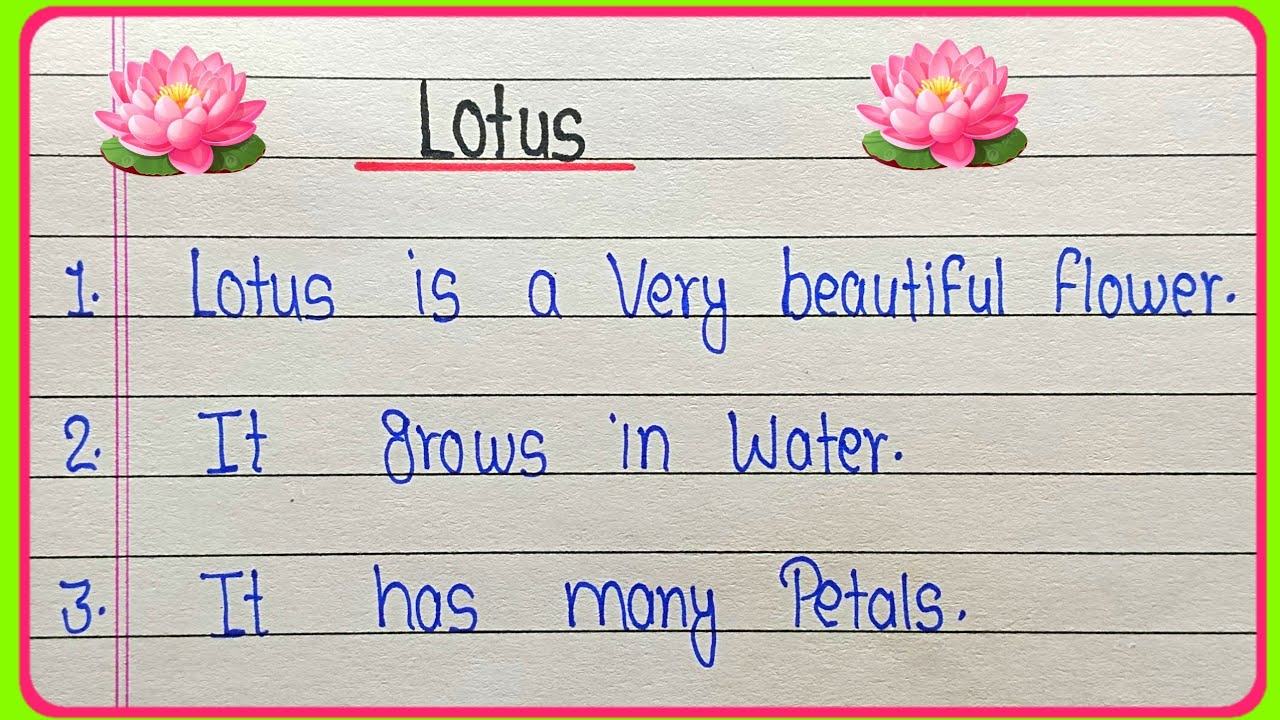 Lotus
1. Lotus is a Very beautiful flower.
2. It grows in Water.
3. It has many Petals.